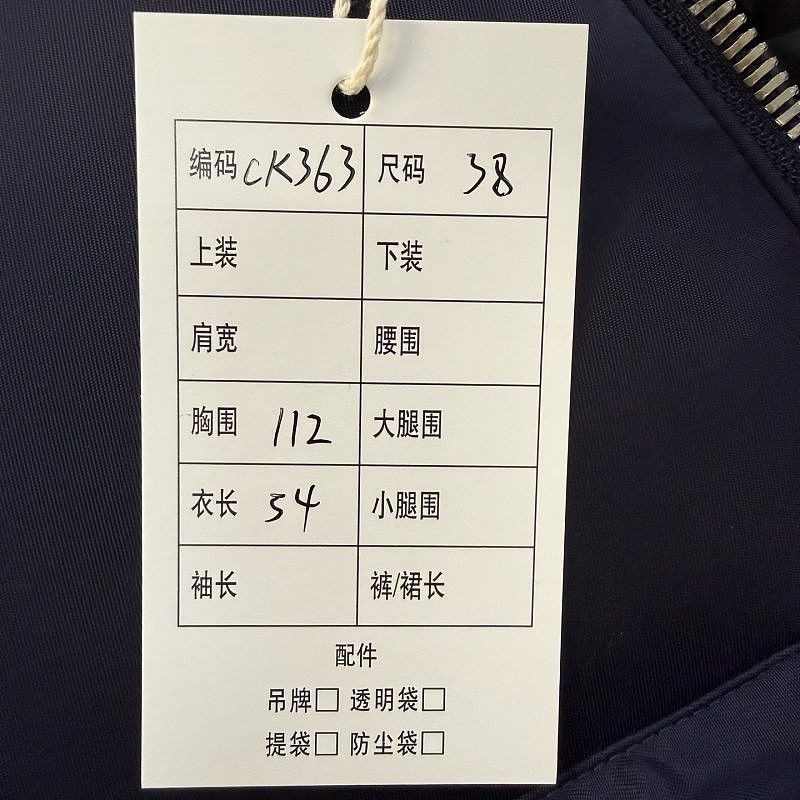 编码 CK363 尺码 38
上装 下装
肩宽 腰围
胸围 112 大腿围
衣长 54 小腿围
袖长 裤/裙长
配件
吊牌□ 透明袋□
提袋□ 防尘袋□